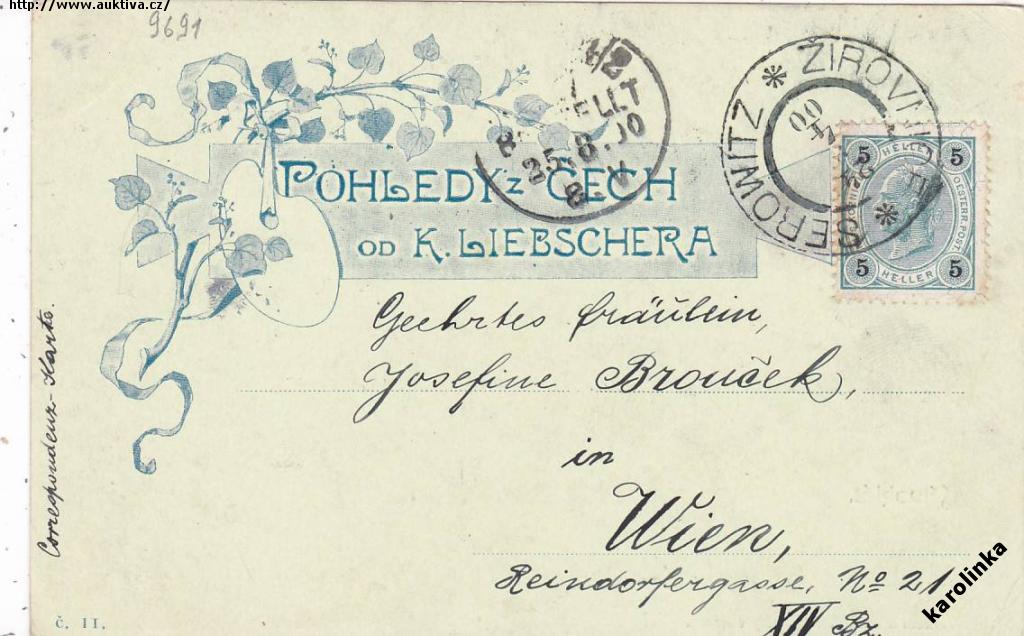 http://www.auktiva.cz/
9691
POHLEDY Z ČECH
OD K. LIEBSCHERA
ŽIROV
SEROWITZ
00
5 HELLER 5
OESTERR. POST.
5 HELLER 5
1/2
ELLT
8.00
V
Geehrtes Fräulein,
Josefine Brouček,
in
Wien,
Reindorfergasse, No 21
XIV Bz.
Correspondenz-Karte
č. II.
karolinka